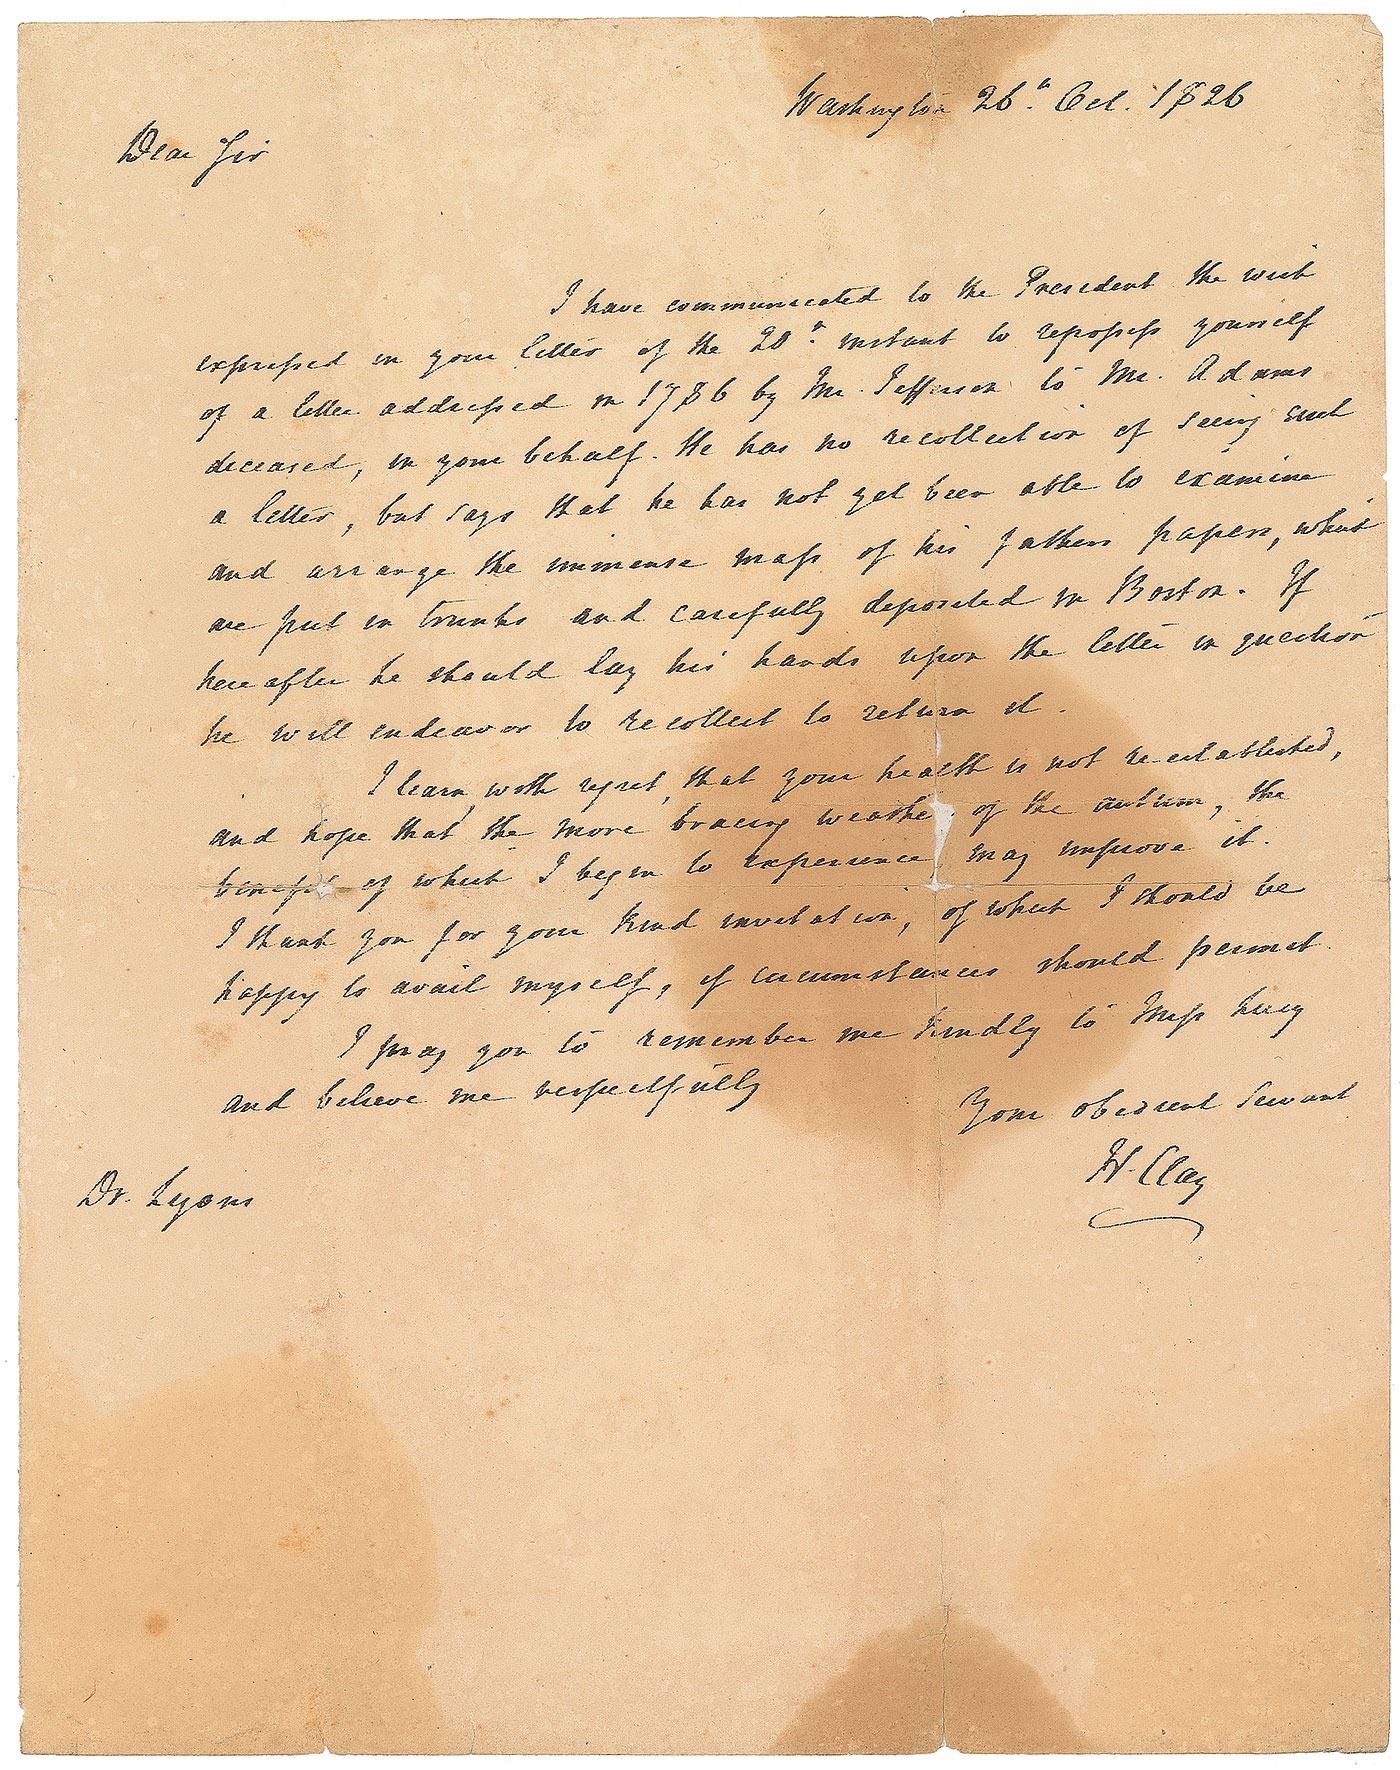 Washington 26.th Oct. 1826
Dear Sir
I have communicated to the President the wish
expressed in your letter of the 20.th instant to repossess yourself
of a letter addressed in 1786 by Mr. Jefferson to Mr. Adams
deceased, in your behalf. He has no recollection of seeing such
a letter, but says that he has not yet been able to examine
and arrange the immense mass of his fathers papers, which
are put in trunks and carefully deposited in Boston. If
hereafter he should lay his hands upon the letter in question
he will endeavor to recollect to return it.
I learn, with regret, that your health is not re-established,
and hope that the more bracing weather of the autum, the
benefit of which I begin to experience, may improve it.
I thank you for your kind invitation, of which I should be
happy to avail myself, if circumstances should permit.
I pray you to remember me kindly to Miss Lucy
and believe me respectfully
Your obedient Servant
H. Clay
Dr. Lyons